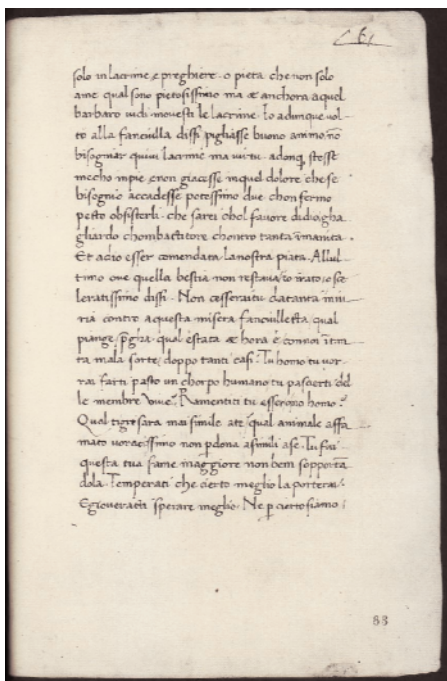 61
solo in lacrime e preghiere. o pieta che non solo
a me qual sono pietosissimo ma æ anchora a quel
barbaro vidi movesti le lacrime. Io adunque vol-
to alla fanciulla dissi pigliasse buono animo nō
bisognar quivi lacrime ma virtu. adonq stesse
mecho in pie e non giacesse in quel dolore che se
bisognio accadesse potessimo due chon fermo
petto obsisterli. che sarei chol favore di dio gha
gliardo chombattitore chontro tanta īmanita.
Et a dio esser comendata la nostra piata. All ul-
timo ove quella bestia non restava io irato o sce
leratissimo dissi. Non cesserai tu da tanta iniu
ria contro a questa misera fanciulletta qual
piange pgha qual e stata æ hora è con noi ī tan
ta mala sorte doppo tanti casi. Tu homo tu vor-
rai farti pasto un chorpo humano tu pascerti del
le membre vive? Ramentiti tu essere uno homo?
Qual tigre sara mai simile a te qual animale affa
mato voracissimo non pdona a simili a se. Tu fini
questa tua fame maggiore non bem sopportā
dola. Temperati che cierto meglio la porterai.
E gioveracti sperare meglio. Ne p cierto siamo
88